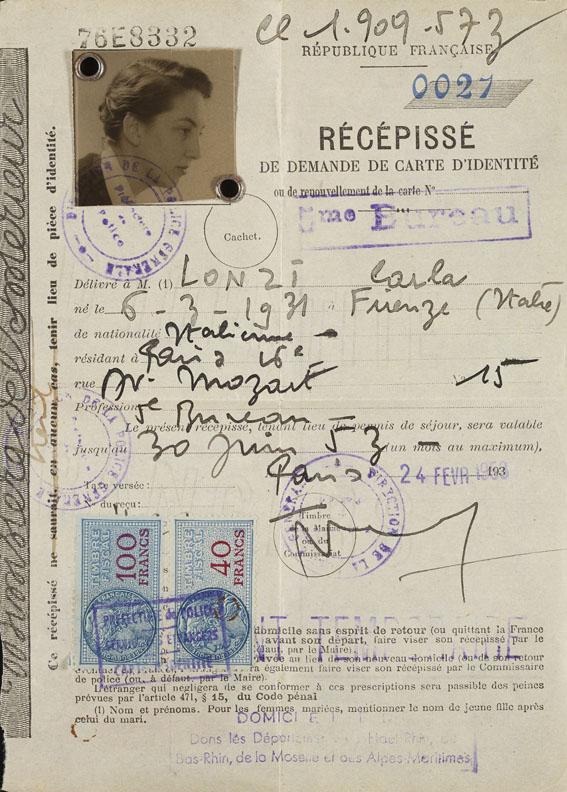 76E8332
CC 1.909.573
RÉPUBLIQUE FRANÇAISE
0027
RÉCÉPISSÉ
DE DEMANDE DE CARTE D'IDENTITÉ
ou de renouvellement de la carte N°
5me Bureau
Cachet.
Délivré à M. (1) LONZI Carla
né le 6-3-1931 à Firenze (Italie)
de nationalité Italienne
résidant à Paris 16e
rue Av. Mozart N° 15
Profession
5e Bureau
Le présent récépissé, tenant lieu de permis de séjour, sera valable
jusqu'au 30 Juin 53 (un mois au maximum),
Paris 24 FEVR 193
Taxe versée:
N° du reçu:
Timbre
de la Mairie
ou du
Commissariat
TIMBRE FISCAL 100 FRANCS
TIMBRE FISCAL 40 FRANCS
PREFECTURE de POLICE
ETRANGERS
domicile sans esprit de retour (ou quittant la France
avant son départ, faire viser son récépissé par le
faut, par le Maire).
arrivée au lieu de son nouveau domicile (ou de son retour
également faire viser son récépissé par le Commissaire
de police (ou, à défaut, par le Maire).
L'étranger qui négligera de se conformer à ces prescriptions sera passible des peines
prévues par l'article 471, § 15, du Code pénal
(1) Nom et prénoms. Pour les femmes mariées, mentionner le nom de jeune fille après
celui du mari.
DOMICILE
Dans les Départements du Haut-Rhin, du
Bas-Rhin, de la Moselle et des Alpes-Maritimes
Ce récépissé ne saurait, en aucun cas, tenir lieu de pièce d'identité.
DIRECTION DE LA POLICE GÉNÉRALE
Préfecture de Police